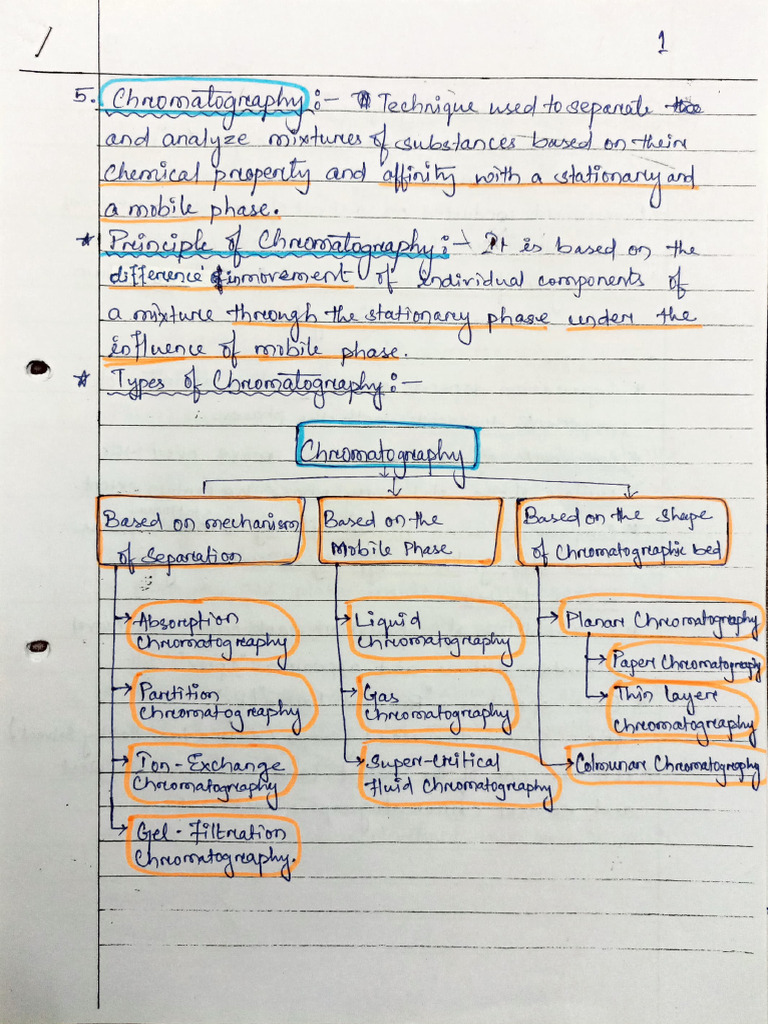 1
5. Chromatography :- Technique used to separate
and analyze mixtures of substances based on their
chemical property and affinity with a stationary and
a mobile phase.
* Principle of Chromatography :- It is based on the
difference in movement of individual components of
a mixture through the stationary phase under the
influence of mobile phase.
* Types of Chromatography :-
Chromatography
Based on mechanism
of Separation
Based on the
Mobile Phase
Based on the Shape
of Chromatographic bed
→ Absorption
Chromatography
→ Partition
Chromatography
→ Ion-Exchange
Chromatography
→ Gel-Filtration
Chromatography.
→ Liquid
Chromatography
→ Gas
Chromatography
→ Super-Critical
Fluid Chromatography
→ Planar Chromatography
→ Paper Chromatography
→ Thin layer
Chromatography
→ Colmunar Chromatography